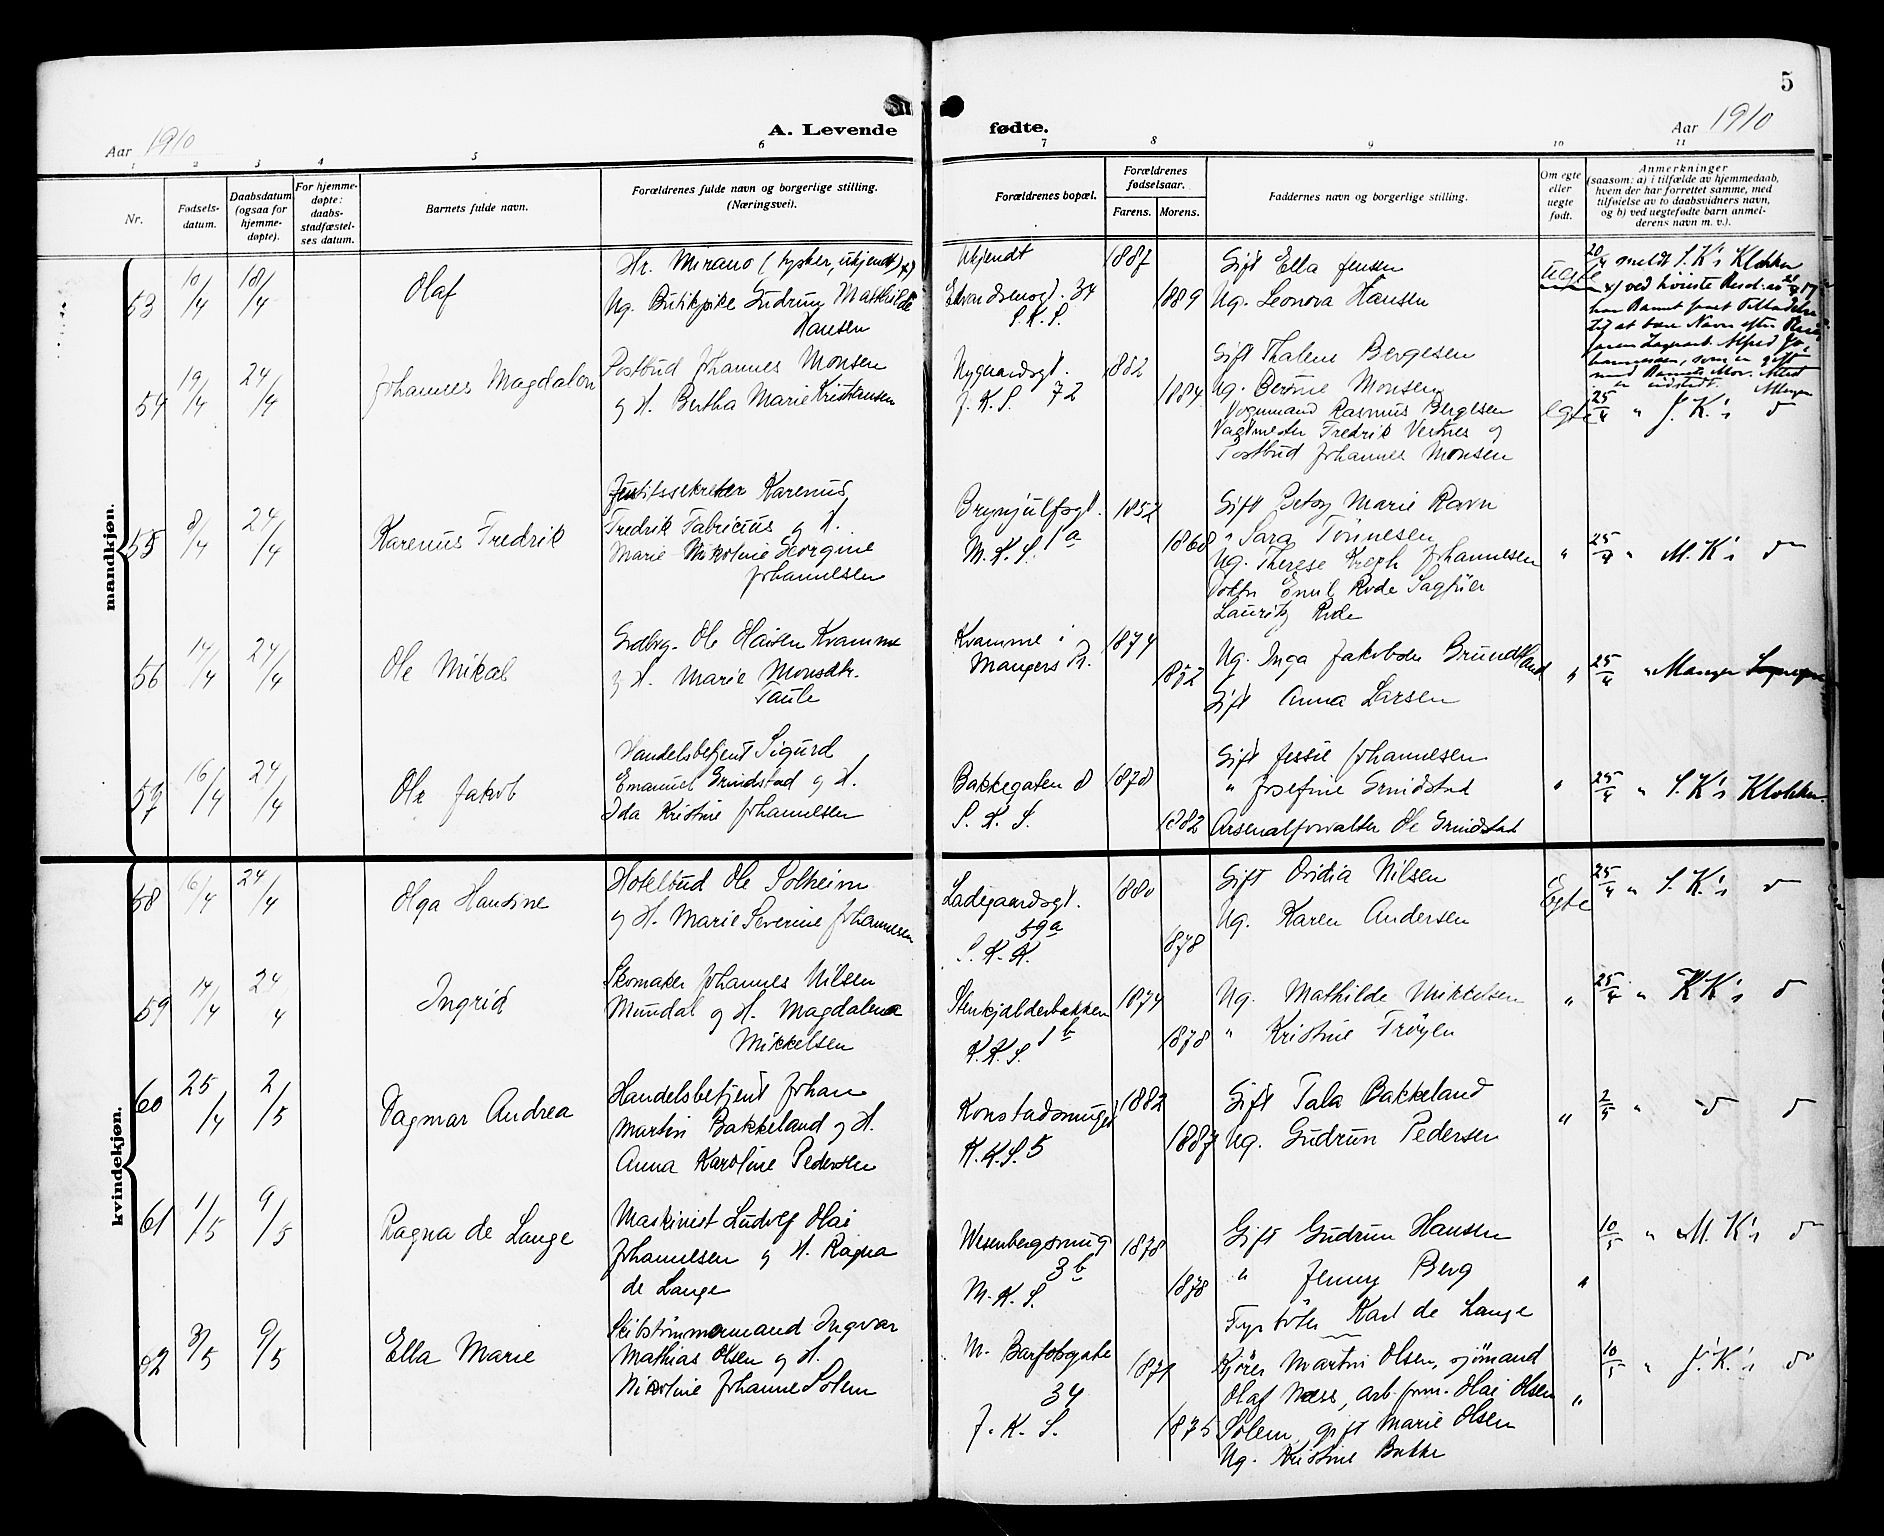 5
Aar 1910
A. Levende
fødte.
Aar 1910
1 2 3 4 5 6 7 8 9 10 11
Nr.
Fødsels-
datum.
Daabsdatum
(ogsaa for
hjemme-
døpte).
For hjemme-
døpte:
daabs-
stadfæstel-
ses datum.
Barnets fulde navn.
Forældrenes fulde navn og borgerlige stilling.
(Næringsvei).
Forældrenes bopæl.
Forældrenes
fødselsaar.
Farens. Morens.
Faddernes navn og borgerlige stilling.
Om egte
eller
uegte
født.
Anmerkninger
(saasom: a) i tilfælde av hjemmedaab,
hvem der har forrettet samme, med
tilføielse av to daabsvidners navn,
og b) ved uegtefødte barn anmel-
derens navn m. v.).
mandkjøn.
53 10/4 18/4 Olaf
Hr. Mirano (tysker, ukjendt) x)
Ug. Butikpike Gudrun Mathilde
Hansen
Ukjendt 1887
Edvardsensgt. 34 1889
S.K.S.
Gift Ella Jensen
Ug. Leonora Hansen
uegte
20/4 meldt S.K's Klokker
x) ved höieste Resol. av
har Barnet faat Tilladelse
til at bære Navn efter
Alfred Jo-
hannessen, som er gift
med Barnets Mor.
er indstedt.
54 19/4 24/4 Johannes Magdalon
Postbud Johannes Monsen
og H. Bertha Marie Kristiansen
Nygaardsgt. 1882
J.K.S. 72 1884
Gift Thalene Bergesen
Ug. Berne Monsen
Vognmand Rasmus Bergesen
Vagtmester Fredrik Vestnes og
Postbud Johannes Monsen
egte 25/4 " J.K.'s d
55 8/4 24/4 Karenus Fredrik
Justitssekretær Karenus
Fredrik Fabricius og H.
Marie Nikoline Georgine
Johannesen
Brynjulfsgt. 1857
M.K.S. 1a 1868
Gift Betsy Marie Ravn
" Sara Tönnesen
Ug. Therese Johannesen
Emil Rode Sagfüer
Lauritz Rode
" 25/4 " M.K's d
56 14/4 24/4 Ole Mikal
Grdbrg. Ole Hansen Kvamme
og H. Marie Monsdtr.
Taule
Kvamme i 1874
Mangers Pr. 1872
Ug. Inga Jakobsen Brundtland
Gift Anna Larsen
" 25/4 " Manger
57 16/4 24/4 Ole Jakob
Handelsbetjent Sigurd
Emanuel Grindstad og H.
Ida Kristine Johannesen
Bakkegaten 8 1878
S.K.S. 1882
Gift Jessie Johannesen
" Josefine Grindstad
Arsenalforvalter Ole Grindstad
" 25/4 " S.K's Klokker
kvindekjøn.
58 16/4 24/4 Olga Hansine
Hotelbud Ole Solheim
og H. Marie Severine Johannesen
Ladegaardsgt. 1880
59a
S.K.K. 1878
Gift Ovidia Nilsen
Ug. Karen Andersen
Egte 25/4 " S.K.'s d
59 14/4 24/4 Ingrid
Skomaker Johannes Nilsen
Mundal og H. Magdalena
Mikkelsen
Stenkjelderbakken 1874
K.K.S. 1b 1878
Ug. Mathilde Mikkelsen
" Kristine Tröyen
" 25/4 " KK's d
60 25/4 2/5 Dagmar Andrea
Handelsbetjent Johan
Martin Bakkeland og H.
Anna Karoline Pedersen
Konstadsmuget 1882
K.K.S. 5 1887
Gift Tala Bakkeland
Ug. Gudrun Pedersen
" 2/5 " d d
61 1/5 9/5 Ragna de Lange
Maskinist Ludolf Olai
Johannesen og H. Ragna
de Lange
Wesenbergsmug 1878
3b
M.K.S. 1878
Gift Gudrun Hansen
" Jenny Berg
Fyrböter Karl de Lange
" 10/5 " M.K's d
62 3/5 9/5 Ella Marie
Skibstömmermand Ingvar
Mathias Olsen og H.
Nikoline Johanne Solem
N. Barfotgate 1871
34
J.K.S. 1875
Kjörer Martin Olsen, sjömand
Olaf Næss, arb.form. Olai Olsen
Solem, gift Marie Olsen
Ug. Kristine Bakke
" 10/5 " J.K.'s d